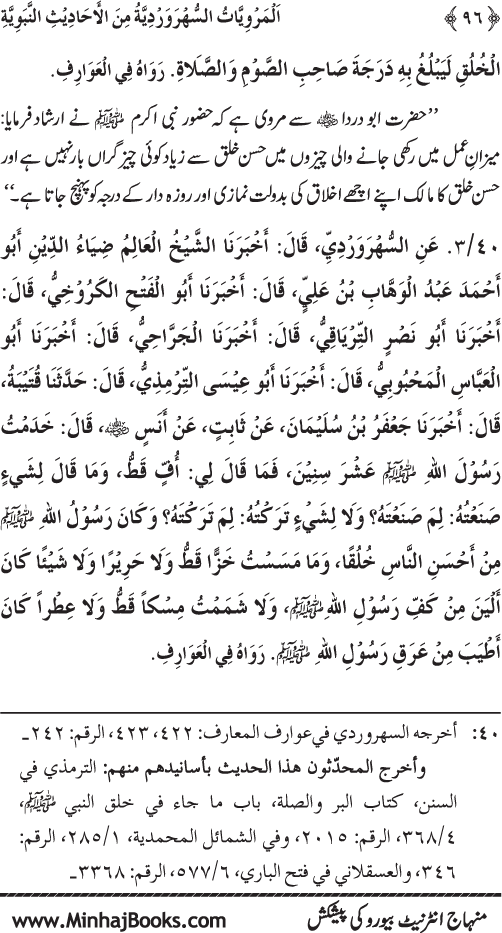 ﴿٩٦﴾ اَلْمَرْوِيَّاتُ السُّهْرَوَرْدِيَّةُ مِنَ الْأَحَادِيْثِ النَّبَوِيَّةِ
الْخُلُقِ لَيَبْلُغُ بِهِ دَرَجَةَ صَاحِبِ الصَّوْمِ وَالصَّلَاةِ. رَوَاهُ فِي الْعَوَارِفِ.
’’حضرت ابو درداء ؓ سے مروی ہے کہ حضور نبی اکرم ﷺ نے ارشاد فرمایا:
میزانِ عمل میں رکھی جانے والی چیزوں میں حسن خلق سے زیاد کوئی چیز گراں بار نہیں ہے اور
حسن خلق کا مالک اپنے اچھے اخلاق کی بدولت نمازی اور روزہ دار کے درجہ کو پہنچ جاتا ہے۔‘‘
٣/٤٠. عَنِ السُّهْرَوَرْدِيِّ، قَالَ: أَخْبَرَنَا الشَّيْخُ الْعَالِمُ ضِيَاءُ الدِّيْنِ أَبُو
أَحْمَدَ عَبْدُ الْوَهَّابِ بْنُ عَلِيٍّ، قَالَ: أَخْبَرَنَا أَبُو الْفَتْحِ الْكَرُوْخِيُّ، قَالَ:
أَخْبَرَنَا أَبُو نَصْرٍ التِّرْيَاقِيُّ، قَالَ: أَخْبَرَنَا الْجَرَّاحِيُّ، قَالَ: أَخْبَرَنَا أَبُو
الْعَبَّاسِ الْمَحْبُوْبِيُّ، قَالَ: أَخْبَرَنَا أَبُو عِيْسَى التِّرْمِذِيُّ، قَالَ: حَدَّثَنَا قُتَيْبَةُ،
قَالَ: أَخْبَرَنَا جَعْفَرُ بْنُ سُلَيْمَانَ، عَنْ ثَابِتٍ، عَنْ أَنَسٍ ؓ، قَالَ: خَدَمْتُ
رَسُوْلَ اللهِ ﷺ عَشْرَ سِنِيْنَ، فَمَا قَالَ لِي: أُفٍّ قَطُّ، وَمَا قَالَ لِشَيْءٍ
صَنَعْتُهُ: لِمَ صَنَعْتَهُ؟ وَلَا لِشَيْءٍ تَرَكْتُهُ: لِمَ تَرَكْتَهُ؟ وَكَانَ رَسُوْلُ اللهِ ﷺ
مِنْ أَحْسَنِ النَّاسِ خُلُقًا، وَمَا مَسَسْتُ خَزًّا قَطُّ وَلَا حَرِيْرًا وَلَا شَيْئًا كَانَ
أَلْيَنَ مِنْ كَفِّ رَسُوْلِ اللهِ ﷺ، وَلَا شَمَمْتُ مِسْكًا قَطُّ وَلَا عِطْراً كَانَ
أَطْيَبَ مِنْ عَرَقِ رَسُوْلِ اللهِ ﷺ. رَوَاهُ فِي الْعَوَارِفِ.
٤٠: أخرجه السهروردي في عوارف المعارف: ٤٢٢، ٤٢٣، الرقم: ٢٤٢۔
وأخرج المحدّثون هذا الحديث بأسانيدهم منهم: الترمذي في
السنن، كتاب البر والصلة، باب ما جاء في خلق النبي ﷺ،
٣٦٨/٤، الرقم: ٢٠١٥، وفي الشمائل المحمدية، ٢٨٥/١، الرقم:
٣٤٦، والعسقلاني في فتح الباري، ٥٧٧/٦، الرقم: ٣٣٦٨۔
منہاج انٹرنیٹ بیورو کی پیشکش www.MinhajBooks.com